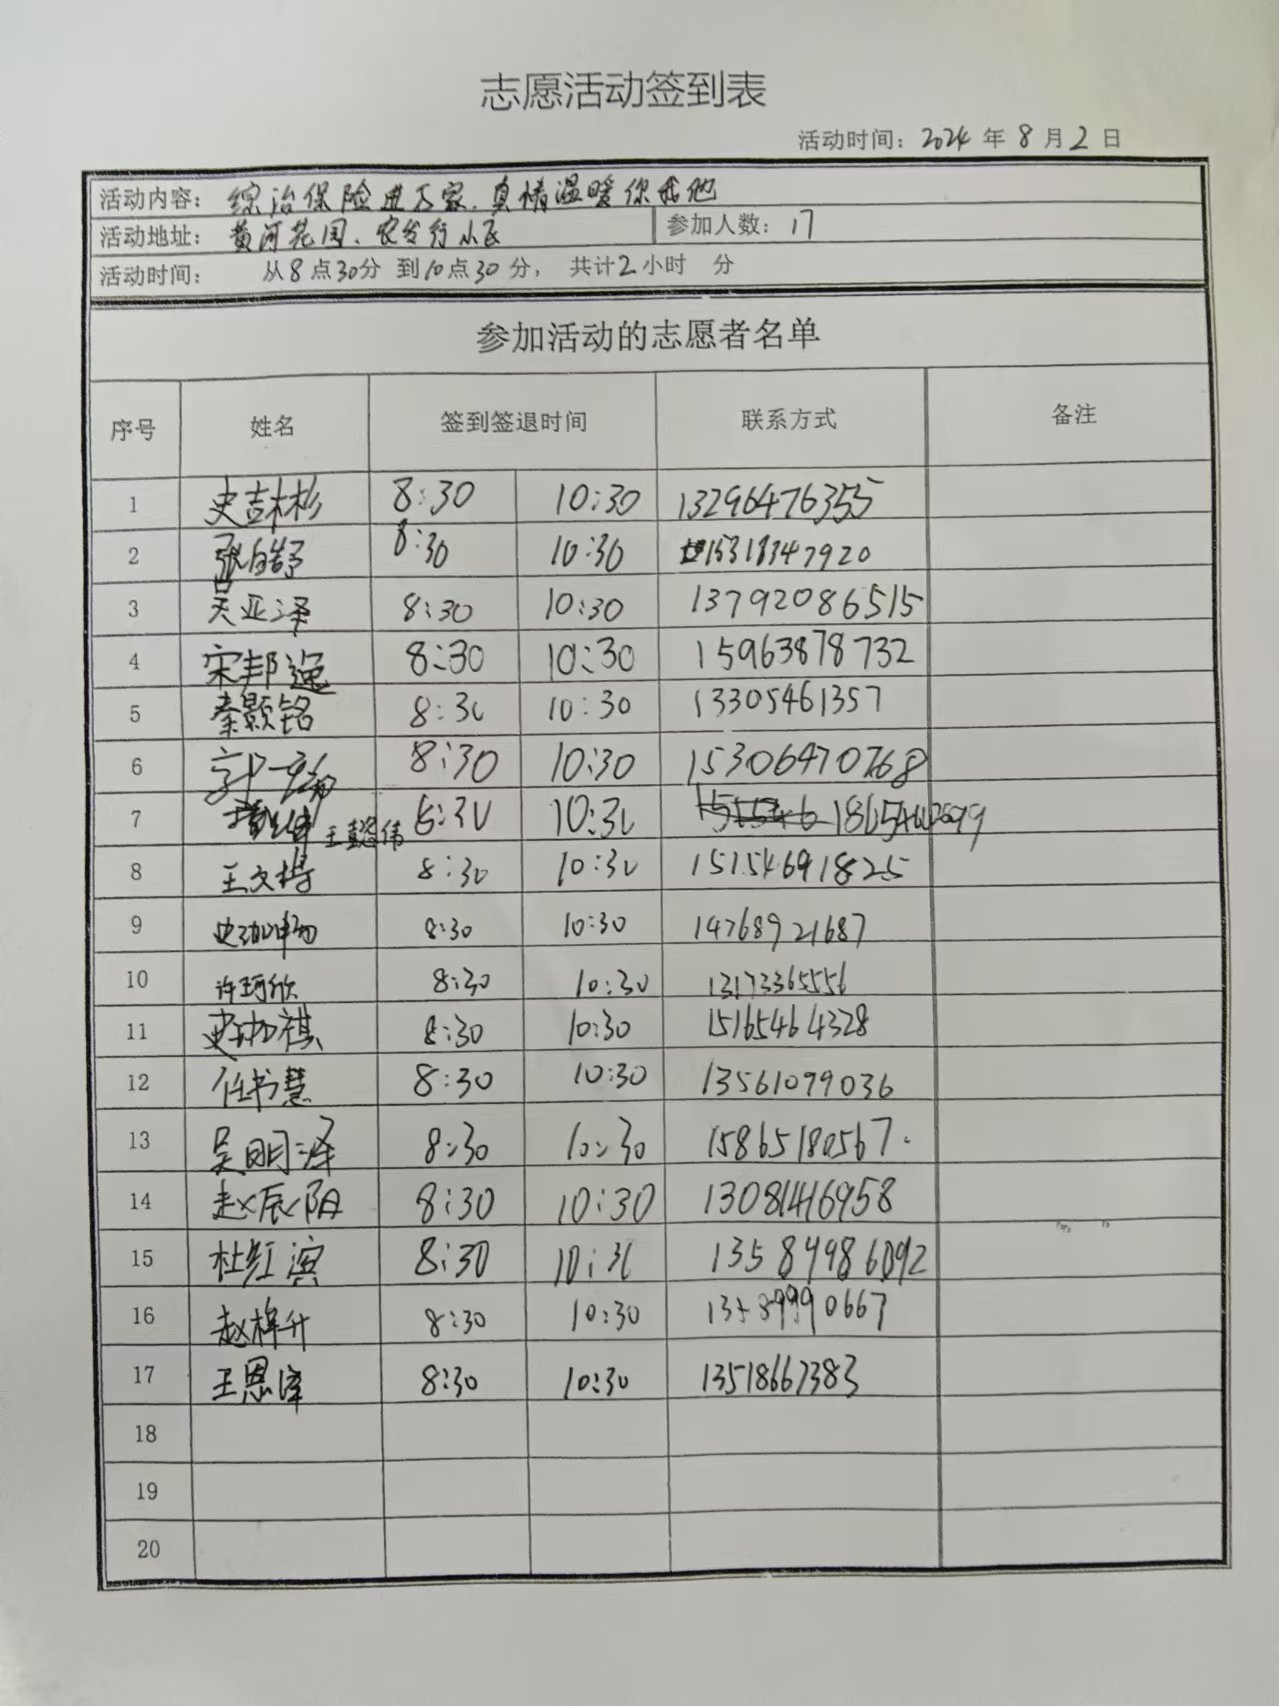 志愿活动签到表
活动时间：2024年8月2日
活动内容：综治保险进万家，真情温暖你我他
活动地址：黄河花园、农发行小区 参加人数：17
活动时间： 从8点30分 到10点30分， 共计2小时 分
参加活动的志愿者名单
序号 姓名 签到签退时间 联系方式 备注
1 史喆彬 8:30 10:30 13296476355
2 张皓 8:30 10:30 15318347920
3 吴亚泽 8:30 10:30 13792086515
4 宋邦逸 8:30 10:30 15963878732
5 秦颢铭 8:30 10:30 13305461357
6 8:30 10:30 15306470768
7 王懿伟 8:30 10:30
8 王文博 8:30 10:30 15154691825
9 8:30 10:30 14768921687
10 许珂欣 8:30 10:30 13173365556
11 史珈祺 8:30 10:30 15165464328
12 任书慧 8:30 10:30 13561079036
13 吴明泽 8:30 10:30 15865180567.
14 赵辰阳 8:30 10:30 13081416958
15 杜红滨 8:30 10:30 13584986092
16 赵梓升 8:30 10:30 13589990667
17 王恩泽 8:30 10:30 13518667383
18
19
20